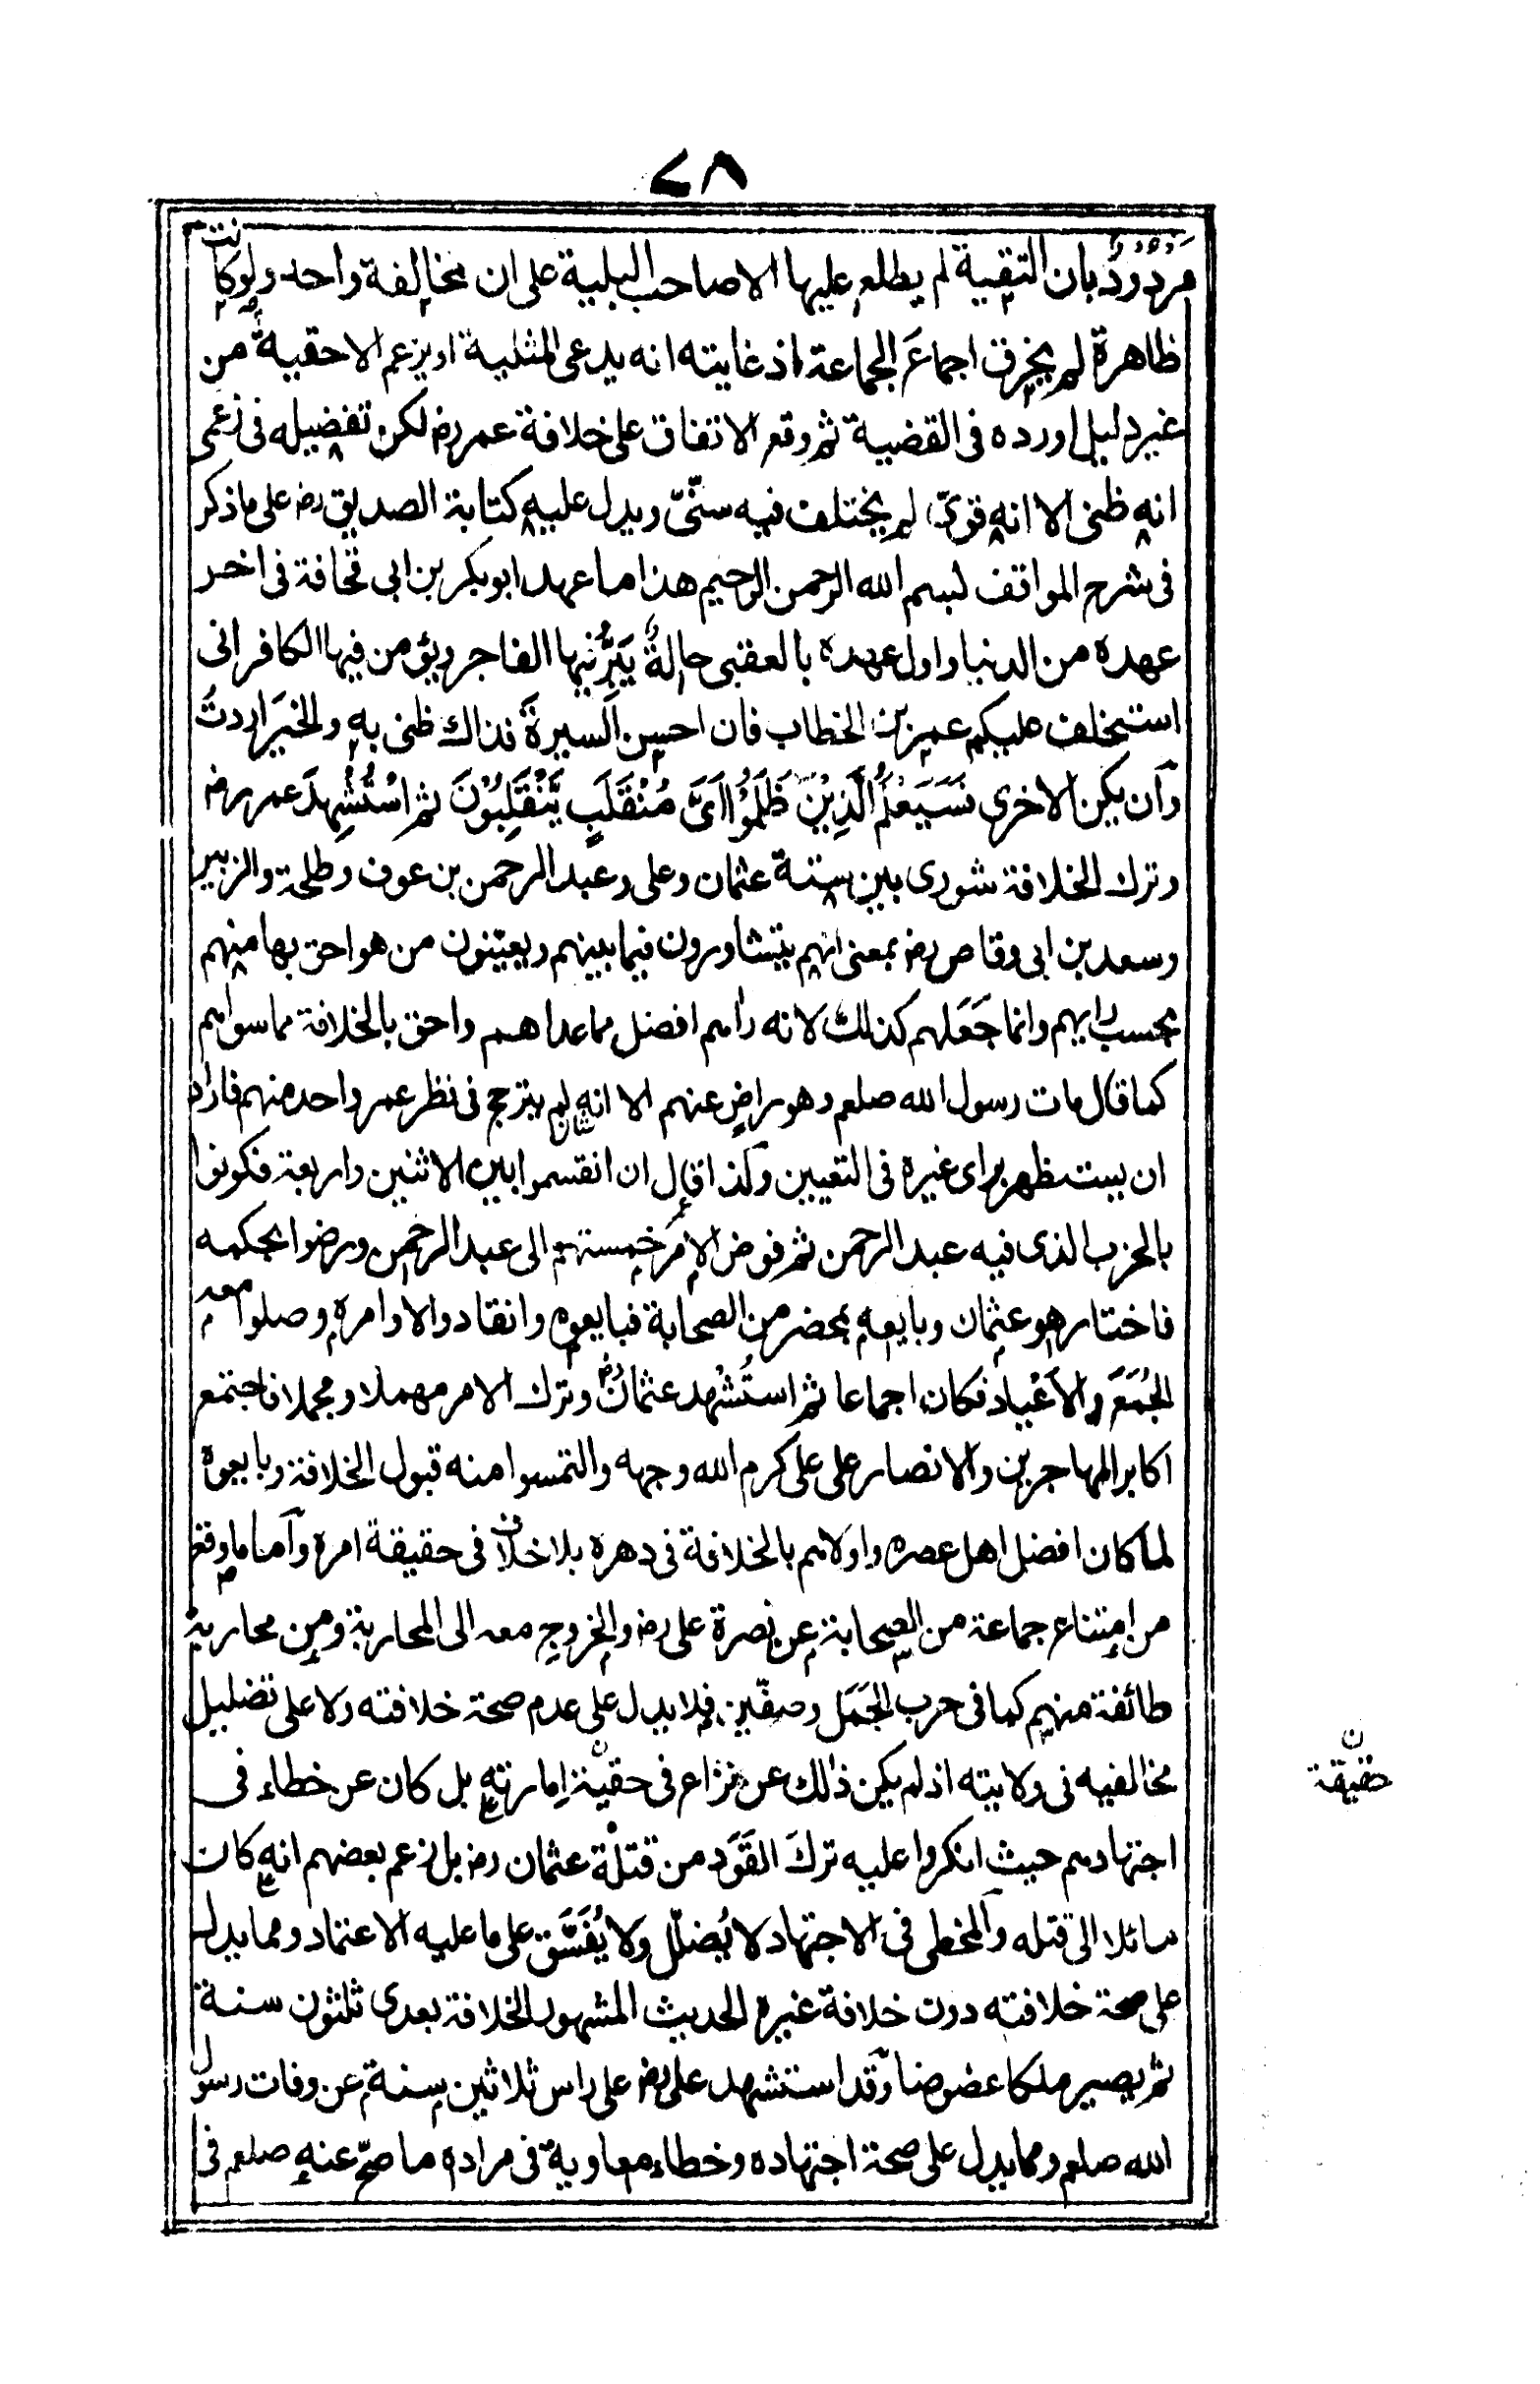 ٧٨
مَرْدُوْدٌ بان التقية لم يطلع عليها الا صاحب البلية على ان مخالفة واحد ولو كانت
ظاهرة لم يخرق اجماعَ الجماعة اذ غايته انه يدعى المثلية او يزعم الاحقية من
غير دليل اورده فى القضية ثم وقع الاتفاق على خلافة عمر رض لكن تفضيله فى زعمى
انه ظنى الا انه قوىّ لم يختلف فيه سنّىّ ويدل عليه كتابة الصديق رض على ما ذكر
فى شرح المواقف لبسم الله الرحمن الرحيم هذا ما عهد ابو بكر بن ابى قحافة فى اخر
عهده من الدنيا واول عهده بالعقبى حالةٌ يَبَرُّ فيها الفاجر ويؤمن فيها الكافر انى
استخلف عليكم عمر بن الخطاب فان احسن السيرةَ فذاك ظنى به والخيرَ اردتُ
وان يكن الاخرى سَيَعْلَمُ الَّذِيْنَ ظَلَمُوْا اَىَّ مُنْقَلَبٍ يَّنْقَلِبُوْنَ ثم اسْتُشْهِدَ عمر رض
وترك الخلافة شورى بين ستة عثمان وعلى وعبد الرحمن بن عوف وطلحة والزبير
وسعد بن ابى وقاص رض بمعنى انهم يتشاورون فيما بينهم ويعيّنون من هو احق بها منهم
بحسب رايهم وانما جَعَلهم كذلك لانه راهم افضل مما عداهم واحق بالخلافة مما سواهم
كما قال مات رسول الله صلعم وهو راضٍ عنهم الا انه لم يترجح فى نظر عمر واحد منهم فاراد
ان يستظهر براى غيره فى التعيين وكذا قال ان انقسموا بين الاثنين واربعة فكونوا
بالحزب الذى فيه عبد الرحمن ثم فوض الامرَ خمستهم الى عبد الرحمن ورضوا بحكمه
فاختار هو عثمان وبايعه بمحضر من الصحابة فبايعوه وانقادوا لاوامره وصلوا معه
الجُمَعَ والاَعْيادَ فكان اجماعا ثم استُشْهد عثمان رض وترك الامر مهملا ومجملا فاجتمع
اكابر المهاجرين والانصار على على كرم الله وجهه والتمسوا منه قبول الخلافة وبايعوه
لما كان افضل اهل عصره واولاهم بالخلافة فى دهره بلا خلاف فى حقيقة امره واما ما وقع
من امتناع جماعة من الصحابة عن نصرة على رض والخروج معه الى المحاربة ومن محاربة
طائفة منهم كما فى حرب الجَمَل وصفّين فلا يدل على عدم صحة خلافته ولا على تضليل
مخالفيه فى ولايته اذ لم يكن ذلك عن نزاع فى حقيّة امارته بل كان عن خطاء فى
ن
حقيقة
اجتهادهم حيث انكروا عليه تركَ القَوَد من قتلة عثمان رض بل زعم بعضهم انه كان
مائلا الى قتله والمخطى فى الاجتهاد لا يُضلّل ولا يُفَسَّق على ما عليه الاعتماد ومما يدل
على صحة خلافته دون خلافة غيره الحديث المشهور الخلافة بعدى ثلثون سنة
ثم يصير ملكا عضوضا وقد استشهد على رض على راس ثلاثين سنة عن وفات رسول
الله صلعم ومما يدل على صحة اجتهاده وخطاء معاوية فى مراده ما صحّ عنه صلعم فى